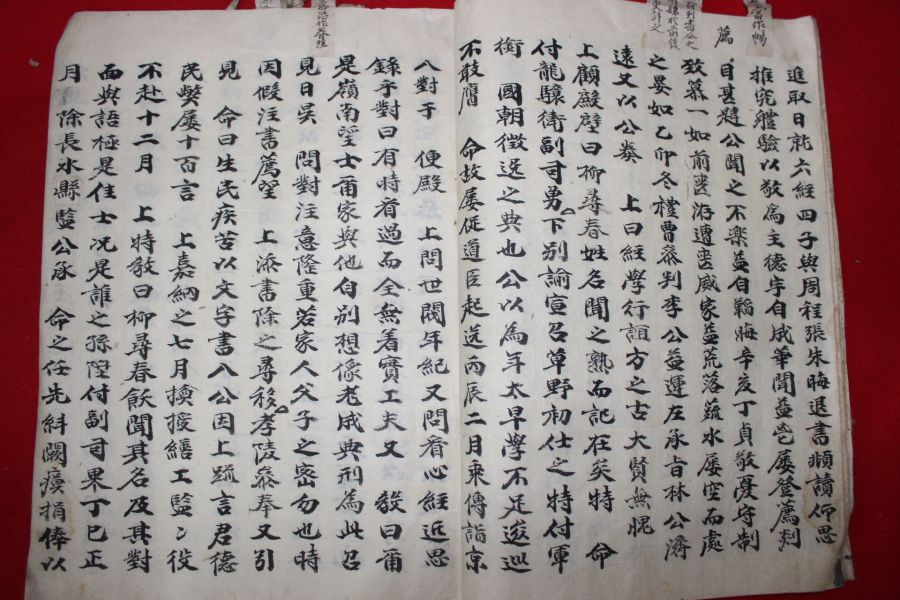 進取日就六經四子與周程張朱晦退書頫讀仰思
推究體驗以敬爲主德宇自成華聞益屢登薦剡
薦
自甚趍公聞之不楽益自韜晦辛亥丁貞敬憂守制
致慕一如前喪洊遭喪威家益荒落蔬水屢空而處
之晏如乙卯冬禮曹叅判李公益運左承旨林公濟
遠又以公奏 上曰經學行誼方之古大賢無愧
上顧殿壁曰柳尋春姓名聞之熟而記在矣特 命
付龍驤衛副司勇下別諭宣召草野初仕之特付軍
銜 國朝徴逸之典也公以為年太早學不足逡巡
不敢膺 命故屢促道臣起送丙辰二月乗傳詣京
入對于 便殿 上問世閥年紀又問看心經近思
錄乎對曰有時看過而全無着實工夫又 教曰爾
是嶺南望士爾家與他自別想像老成典刑為此召
見日吴 問對注意隆重若家人父子之密勿也時
因假注書薦望 上添書除之尋移孝陵叅奉又引
見 命曰生民疾苦以文字書入公因上䟽言君德
民獘屡十百言 上嘉納之七月換授繕工監ミ役
不赴十二月 上特教曰柳尋春飫聞其名及其對
面與語極是佳士况是誰之孫陞付副司果丁巳正
月 除長水縣監公承 命之任先糾闕瘼捐俸以